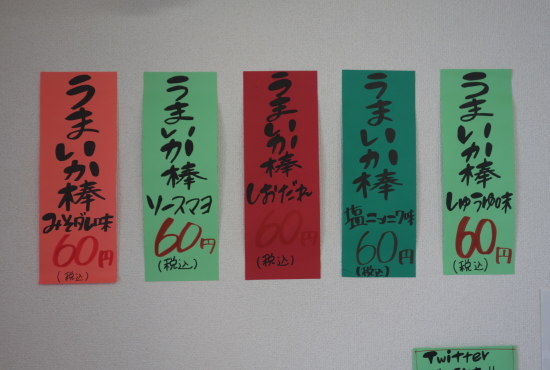 うまいか棒
みそダレ味
60円
(税込)
うまいか棒
ソースマヨ
60円
(税込)
うまいか棒
しおだれ
60円
(税込)
うまいか棒
塩ニンニク味
60円
(税込)
うまいか棒
しょうゆ味
60円
(税込)
Twitter